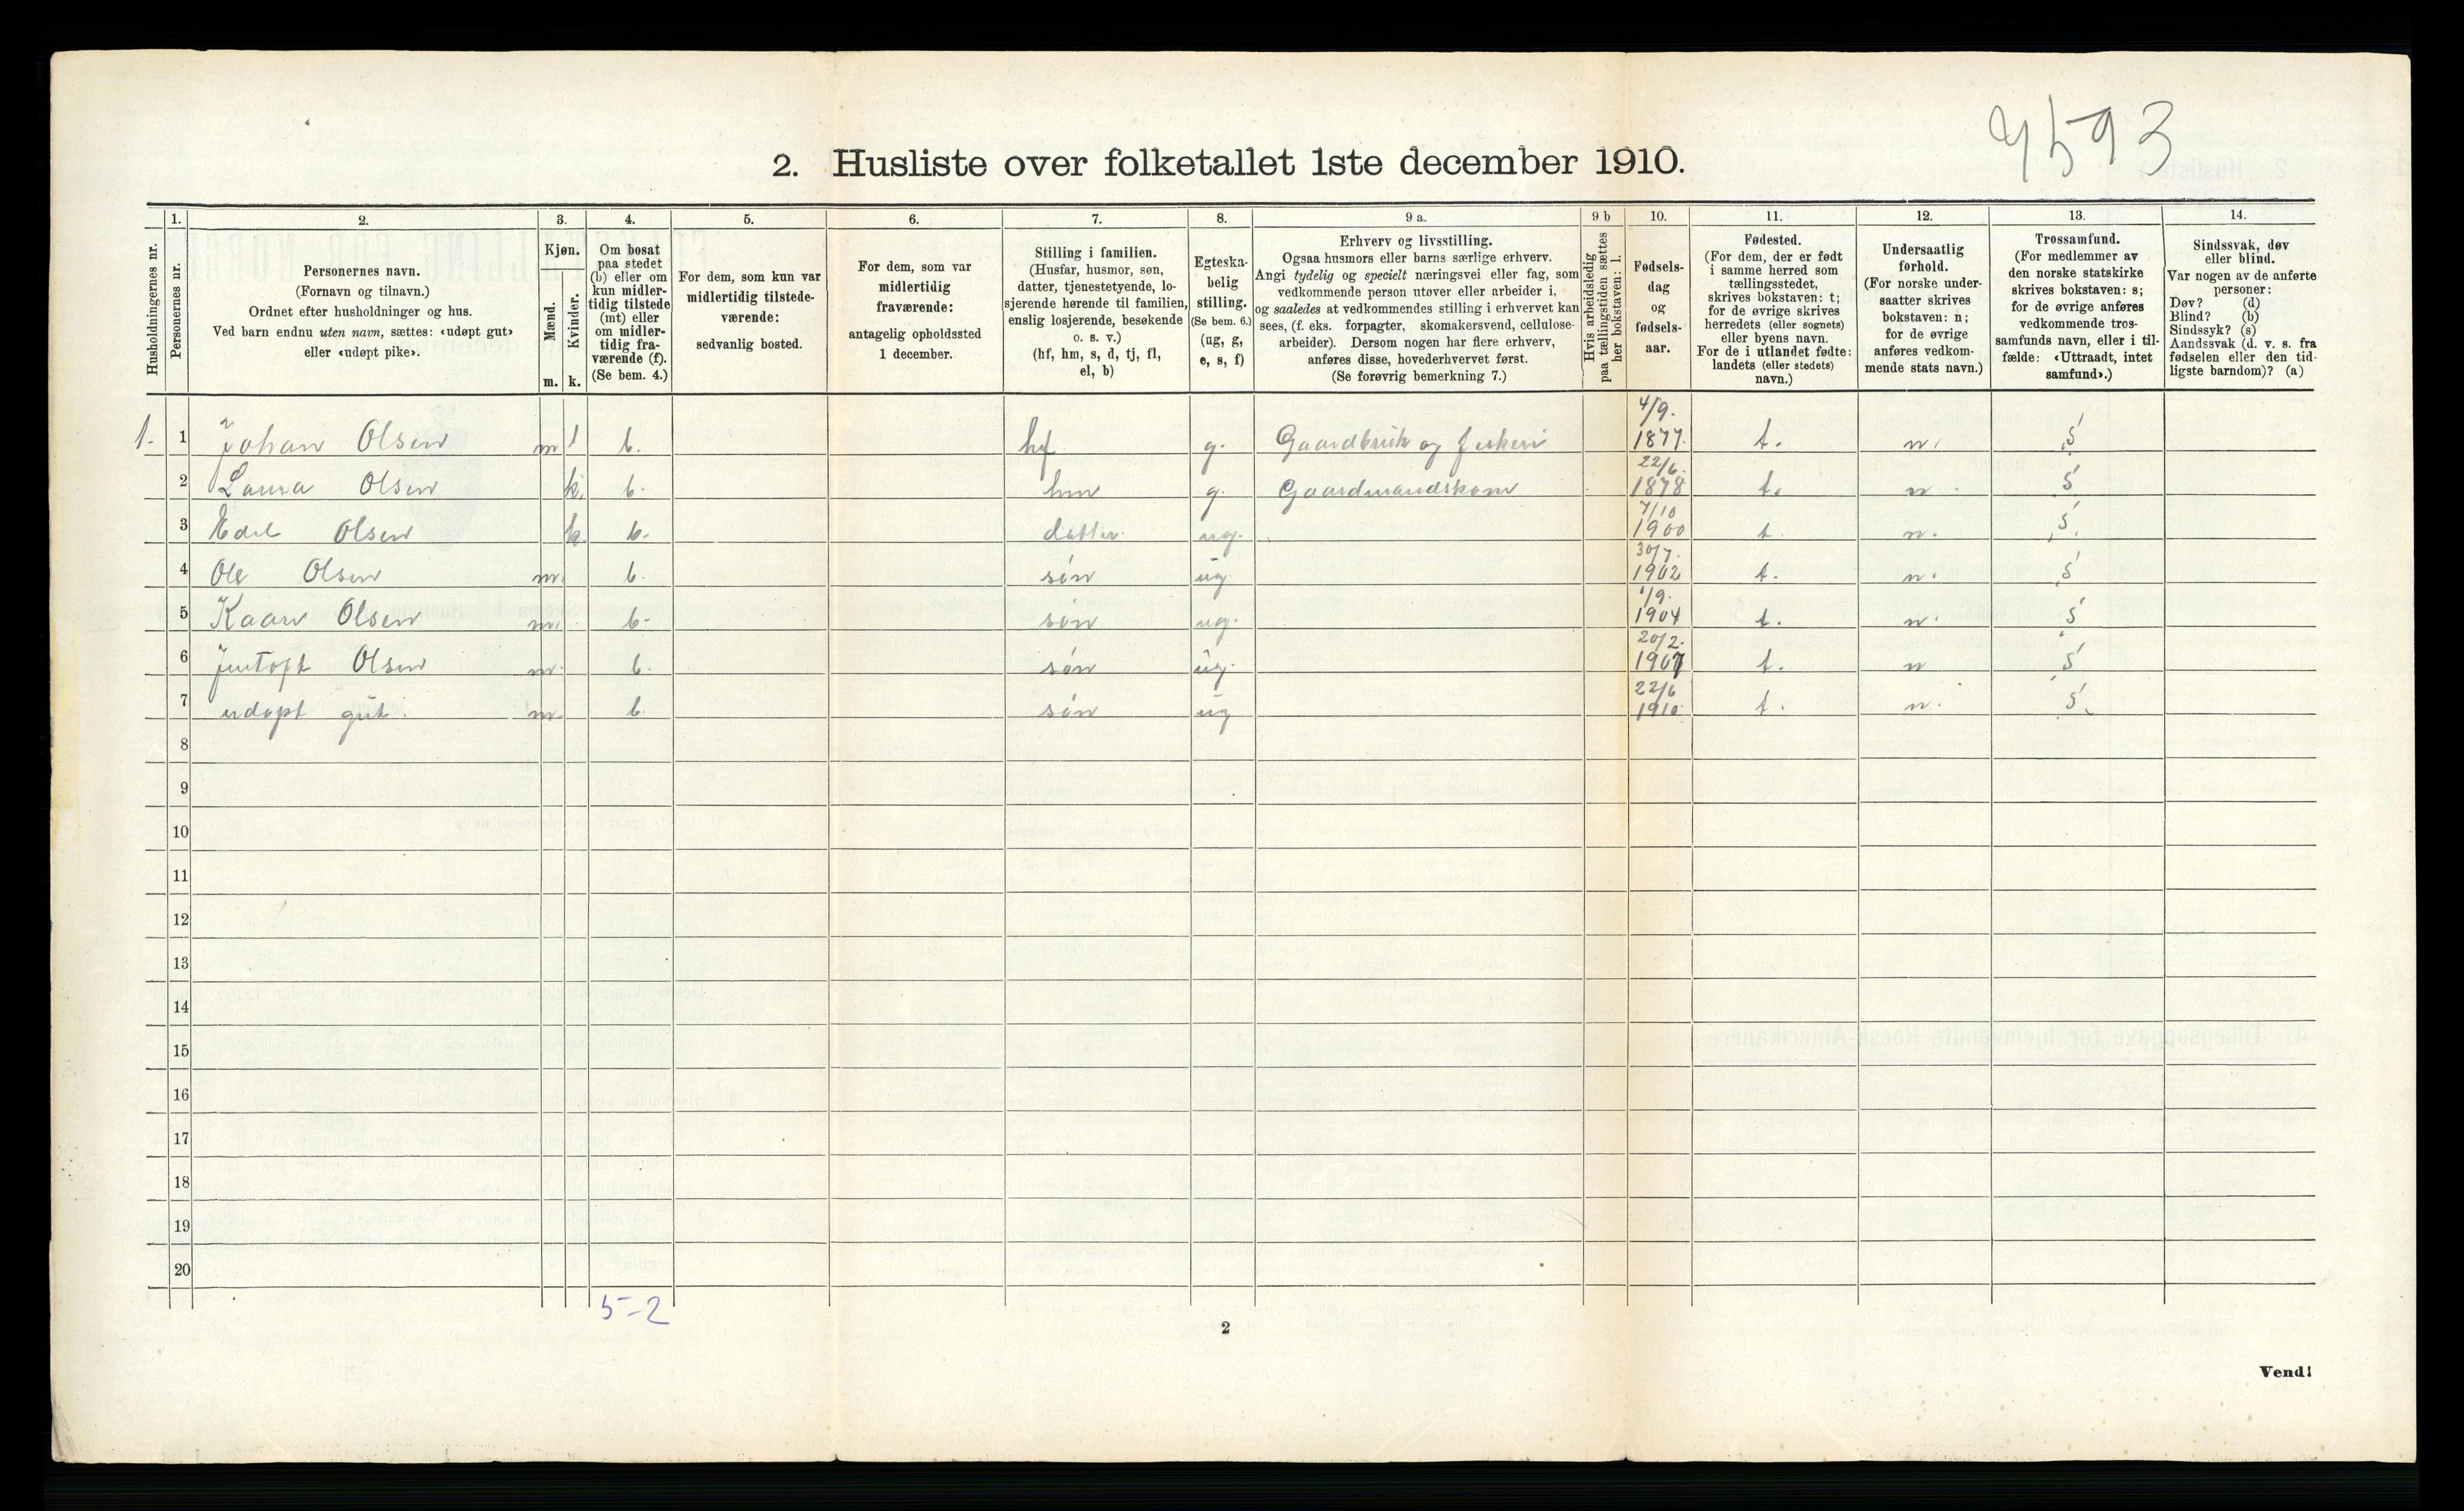 4593
2. Husliste over folketallet 1ste december 1910.
Husholdningernes nr.
1.
Personernes nr.
2.
Personernes navn.
(Fornavn og tilnavn.)
Ordnet efter husholdninger og hus.
Ved barn endnu uten navn, sættes: «udøpt gut»
eller «udøpt pike».
3.
Kjøn.
Mænd.
Kvinder.
m. k.
4.
Om bosat
paa stedet
(b) eller om
kun midler-
tidig tilstede
(mt) eller
om midler-
tidig fra-
værende (f).
(Se bem. 4.)
5.
For dem, som kun var
midlertidig tilstede-
værende:
sedvanlig bosted.
6.
For dem, som var
midlertidig
fraværende:
antagelig opholdssted
1 december.
7.
Stilling i familien.
(Husfar, husmor, søn,
datter, tjenestetyende, lo-
sjerende hørende til familien,
enslig losjerende, besøkende
o. s. v.)
(hf, hm, s, d, tj, fl,
el, b)
8.
Egteska-
belig
stilling.
(Se bem. 6.)
(ug, g,
e, s, f)
9 a.
Erhverv og livsstilling.
Ogsaa husmors eller barns særlige erhverv.
Angi tydelig og specielt næringsvei eller fag, som
vedkommende person utøver eller arbeider i,
og saaledes at vedkommendes stilling i erhvervet kan
sees, (f. eks. forpagter, skomakersvend, cellulose-
arbeider). Dersom nogen har flere erhverv,
anføres disse, hovederhvervet først.
(Se forøvrig bemerkning 7.)
9 b
Hvis arbeidsledig
paa tællingstiden sættes
her bokstaven: l.
10.
Fødsels-
dag
og
fødsels-
aar.
11.
Fødested.
(For dem, der er født
i samme herred som
tællingsstedet,
skrives bokstaven: t;
for de øvrige skrives
herredets (eller sognets)
eller byens navn.
For de i utlandet fødte:
landets (eller stedets)
navn.)
12.
Undersaatlig
forhold.
(For norske under-
saatter skrives
bokstaven: n;
for de øvrige
anføres vedkom-
mende stats navn.)
13.
Trossamfund.
(For medlemmer av
den norske statskirke
skrives bokstaven: s;
for de øvrige anføres
vedkommende tros-
samfunds navn, eller i til-
fælde: «Uttraadt, intet
samfund».)
14.
Sindssvak, døv
eller blind.
Var nogen av de anførte
personer:
Døv? (d)
Blind? (b)
Sindssyk? (s)
Aandssvak (d. v. s. fra
fødselen eller den tid-
ligste barndom)? (a)
1. 1 Johan Olsen m 1 b. hf g. Gaardbruk og fiskeri 4/9. 1877. t. n. s
2 Laura Olsen k. b. hm g. Gaardmandskone 22/6. 1878 t. n s
3 Edel Olsen k. b. datter ug. 7/10 1900 t. n. s.
4 Ole Olsen m. b. søn ug. 30/7. 1902 t. n. s
5 Kaare Olsen m. b. søn ug. 1/9. 1904 t. n. s
6 Jentoft Olsen m. b. søn ug. 20/2. 1907 t. n s
7 udøpt gut. m. b søn ug 22/6 1910. t. n. s.
8
9
10
11
12
13
14
15
16
17
18
19
20
5-2
2
Vend!